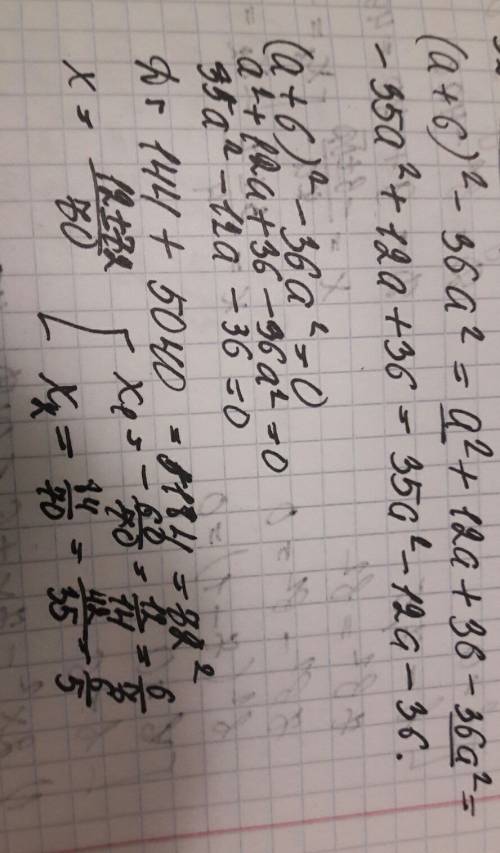 (a+6)² - 36a² = a² + 12a + 36 - 36a² =
- 35a² + 12a + 36 = 35a² - 12a - 36.
(a+6)² - 36a² = 0
a² + 12a + 36 - 36a² = 0
35a² - 12a - 36 = 0
D = 144 + 5040 = 5184 = 72²
x = 12±72/70
x₁ = - 60/70 = 12/14 = 6/7
x₂ = 84/70 = 42/35 = 6/5